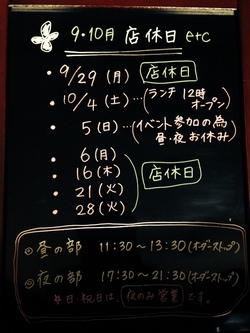 9・10月 店休日 etc
・9/29(月) 店休日
・10/4(土)…(ランチ12時オープン)
・5(日)…(イベント参加の為 昼・夜お休み)
・6(月)
・16(木)
・21(火)
・28(火)
店休日
◎昼の部 11:30〜13:30(オーダーストップ)
◎夜の部 17:30〜21:30(オーダーストップ)
祝日は、夜のみ営業です。